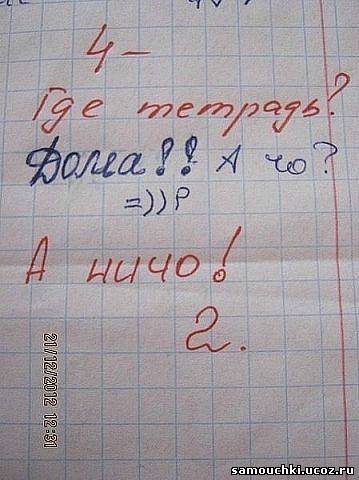 4-
Где тетрадь?
Дома!! А чо?
=))P
А ничо!
2.
21/12/2012 12:31
samouchki.ucoz.ru